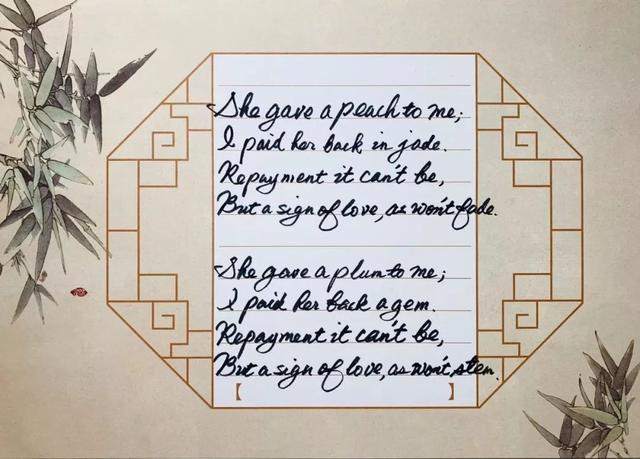 She gave a peach to me;
I paid her back in jade.
Repayment it can't be,
But a sign of love, as won't fade.
She gave a plum to me;
I paid her back a gem.
Repayment it can't be,
But a sign of love, as won't stem.